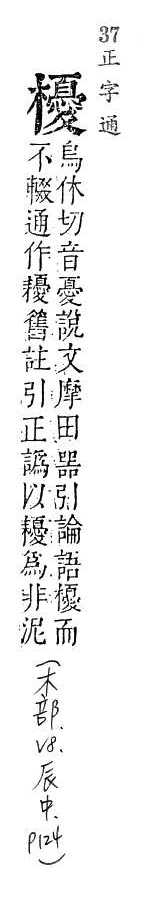 37
正字通
櫌
烏休切音憂說文摩田器引論語櫌而
不輟通作耰舊註引正譌以耰爲非泥
(木部.V8.辰中.P124)